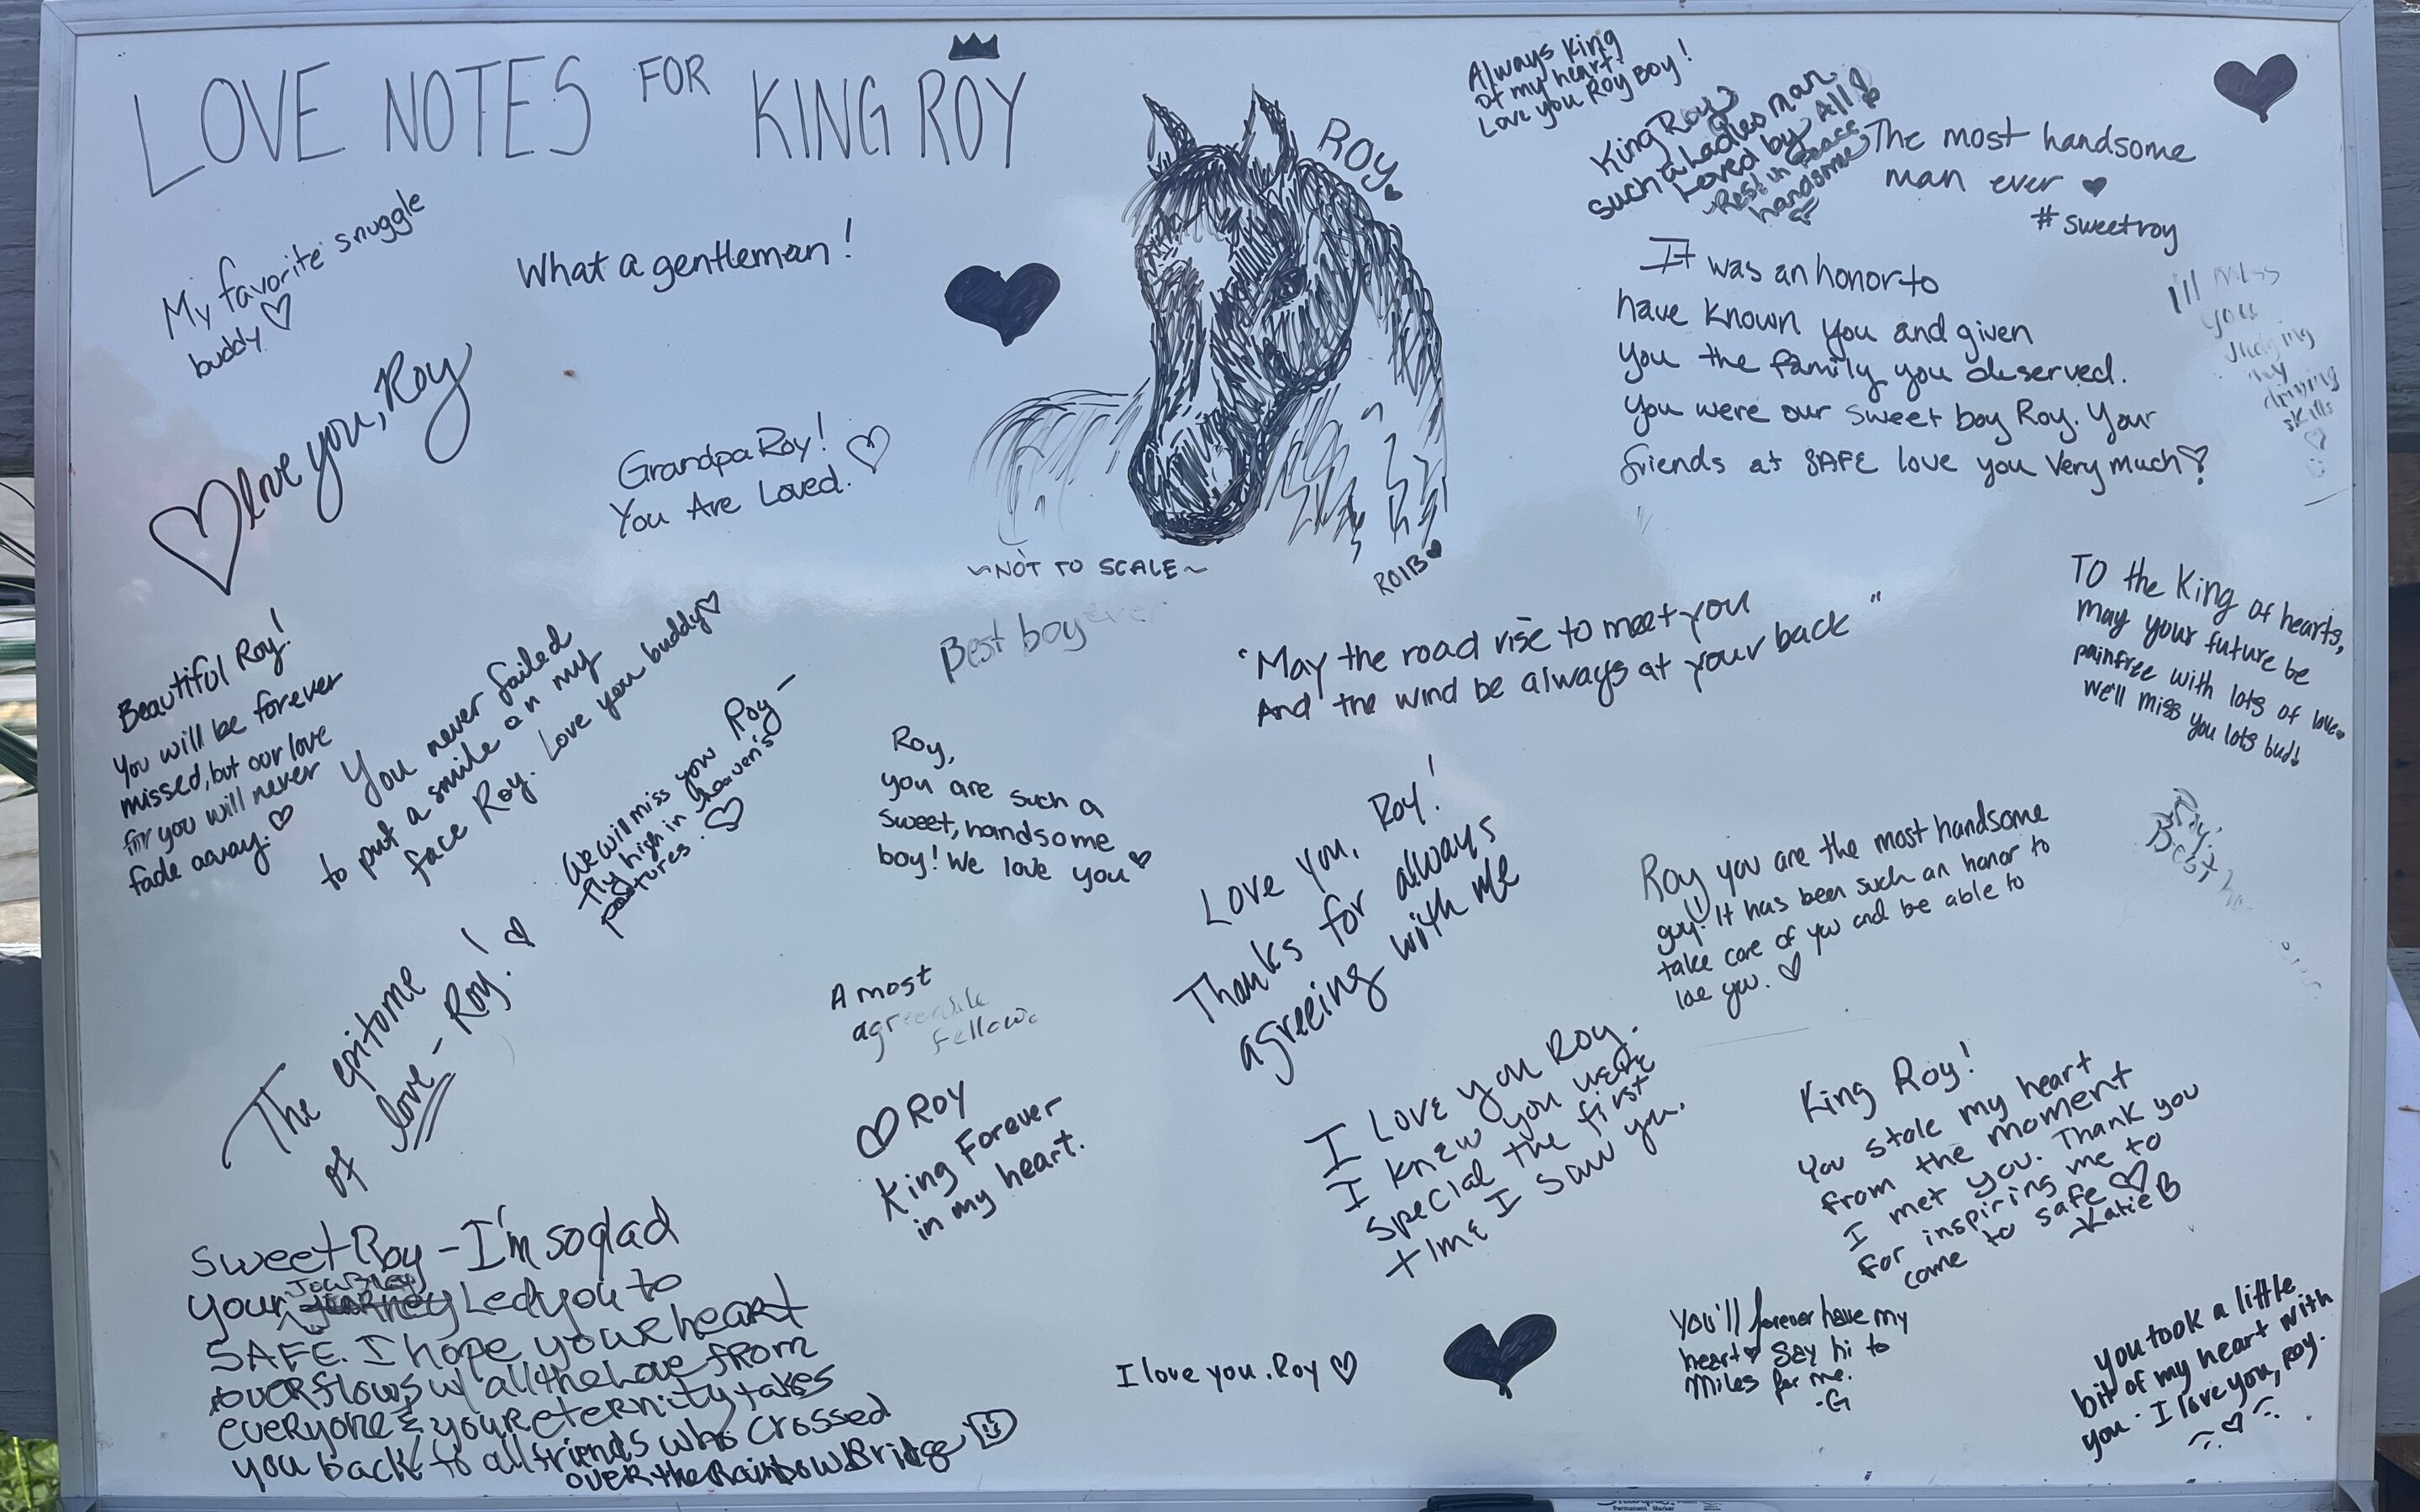 LOVE NOTES FOR KING ROY
My favorite snuggle
buddy
What a gentleman!
love you, Roy
Grandpa Roy!
You Are Loved.
ROY
~NOT TO SCALE~
ROIIB
Always King
of my heart!
Love you Roy Boy!
King Roy
such a ladies man
Loved by All!
Rest in Peace
handsome
The most handsome
man ever
#sweetroy
It was an honor to
have known you and given
you the family you deserved.
You were our sweet boy Roy. Your
friends at SAFE love you very much
I'll miss
you
Judging
my
driving
skills
Best boy ever
"May the road rise to meet you
And the wind be always at your back"
To the King of hearts,
may your future be
painfree with lots of love
we'll miss you lots bud!
Beautiful Roy!
You will be forever
missed, but our love
for you will never
fade away.
You never failed
to put a smile on my
face Roy. Love you buddy
We will miss you Roy -
Fly high in heaven's
pastures.
Roy,
you are such a
sweet, handsome
boy! We love you
Love you, Roy!
Thanks for always
agreeing with me
Roy you are the most handsome
guy!! It has been such an honor to
take care of you and be able to
love you.
Best
The epitome
of love - Roy!
A most
agreeable
fellow.
ROY
King Forever
in my heart.
I Love you Roy.
I knew you were
special the first
time I saw you.
King Roy!
You stole my heart
from the moment
I met you. Thank you
for inspiring me to
come to safe
-Katie B
Sweet Roy - I'm so glad
your Journey Led you to
SAFE. I hope youre heart
overflows w/ all the love from
everyone & your eternity takes
you back to all friends who crossed
over the Rainbow Bridge
I love you. Roy
You'll forever have my
heart Say hi to
Miles for me.
-G
you took a little
bit of my heart with
you. I love you, Roy.
Permanent Marker